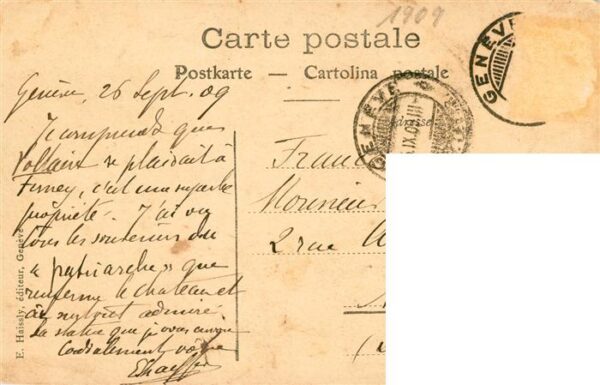 1909
Carte postale
Postkarte — Cartolina postale
GENÈVE
GENÈVE
IX.09
Adresse
Genève, 26 Sept. 09
Je comprends que
Voltaire se plaidait à
Ferney, c'est une superbe
propriété. J'ai vu
tous les souvenirs du
« patriarche » que
renferme le chateau et
ai surtout admiré
la statue que je vous envoie
Cordialement vôtre
Franc
Monsieur
2 rue
E. Haissly, éditeur, Genève